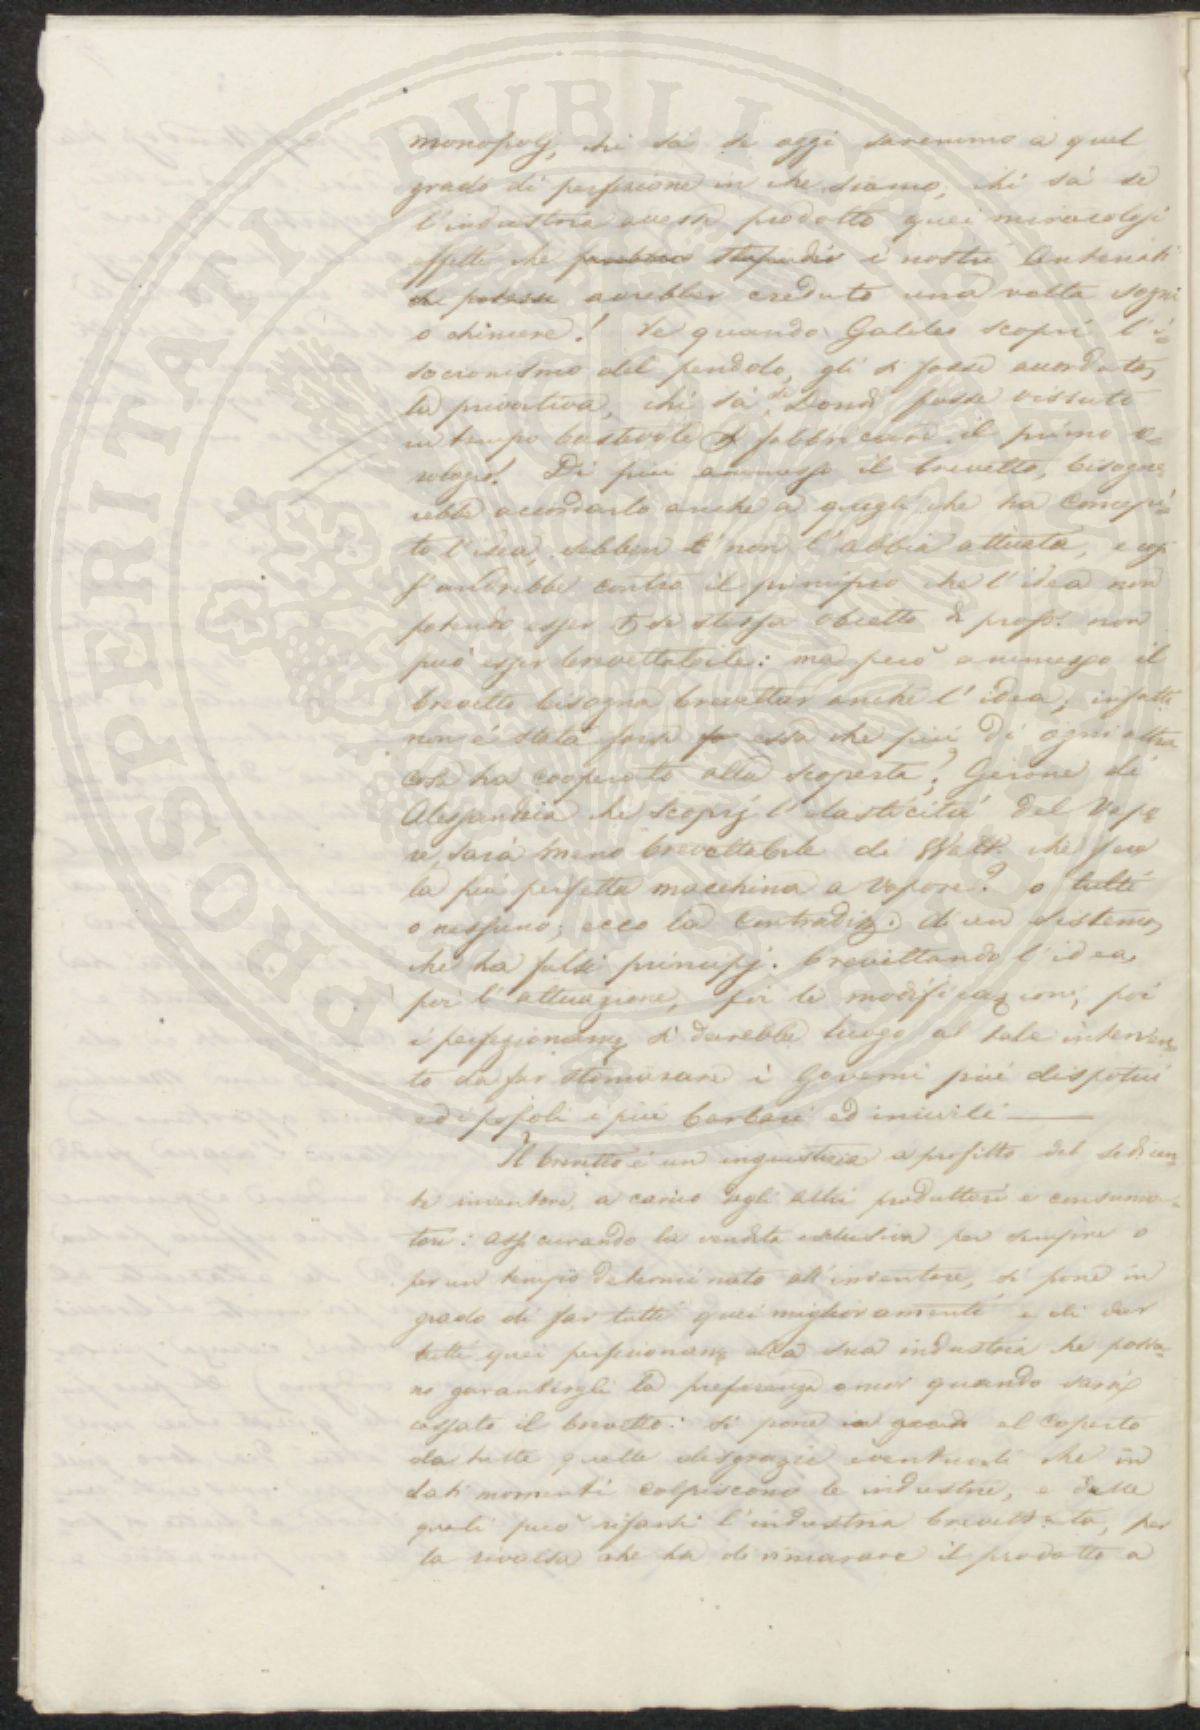 monopolj, chi sà se oggi saremmo a quel
grado di perfezione in che siamo, chi sà se
l'industria avesse prodotto quei miracolosi
effetti che i nostri Antenati
avrebber creduto una volta sogni
o chimere! Se quando Galileo scoprì l'i-
socronismo del pendolo, gli si fosse accordata
la privativa, chi sà se Dondi fosse vissuto
in tempo bastevole a fabbricare il primo o-
rologio! Di più ammesso il brevetto, bisogne-
rebbe accordarlo anche a quegli che ha concepi-
to l'idea, sebben non l'abbia attuata, e così
s'andrebbe contro il principio che l'idea non
potendo esser di se stessa obietto di prop. non
può esser brevettabile: ma però ammesso il
brevetto bisogna brevettar anche l'idea; infatti
non è stata forse essa che più di ogni altra
cosa ha cooperato alla scoperta? Gerone di
Alessandria che scoprj l'elasticità del Vapo
re, sarà meno brevettabile di Watt che fece
la più perfetta macchina a vapore? o tutti
o nessuno; ecco la contradiz. di un sistema
che ha falsi principj. Brevettando l'idea,
poi l'attuazione, poi le modificazioni, poi
i perfezionam. si darebbe luogo al tale interven-
to da far stomacare i Governi più dispotici
ed i popoli i più barbari ed incivili ——
Il brevetto è un ingiustizia a profitto del sedicen-
te inventore, a carico degli altri produttori e consuma-
tori: assicurando la vendita esclusiva per sempre o
per un tempo determinato all'inventore, si pone in
grado di far tutti quei miglioramenti e di dar
tutti quei perfezionam. alla sua industria che possa-
no garantirgli la preferenza ancor quando sarà
cessato il brevetto: si pone in grado al coperto
da tutte quelle disgrazie eventuali che in
dati momenti colpiscono le industrie, e dalle
quali può rifarsi l'industria brevettata, per
la rivalsa che ha di rincarare il prodotto a
PROSPERITATI PUBLICAE